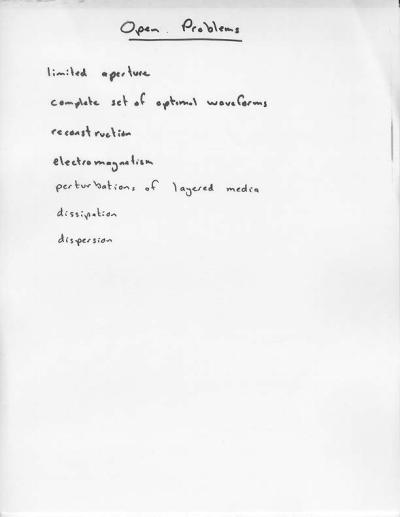 Open Problems
limited aperture
complete set of optimal waveforms
reconstruction
electromagnetism
perturbations of layered media
dissipation
dispersion